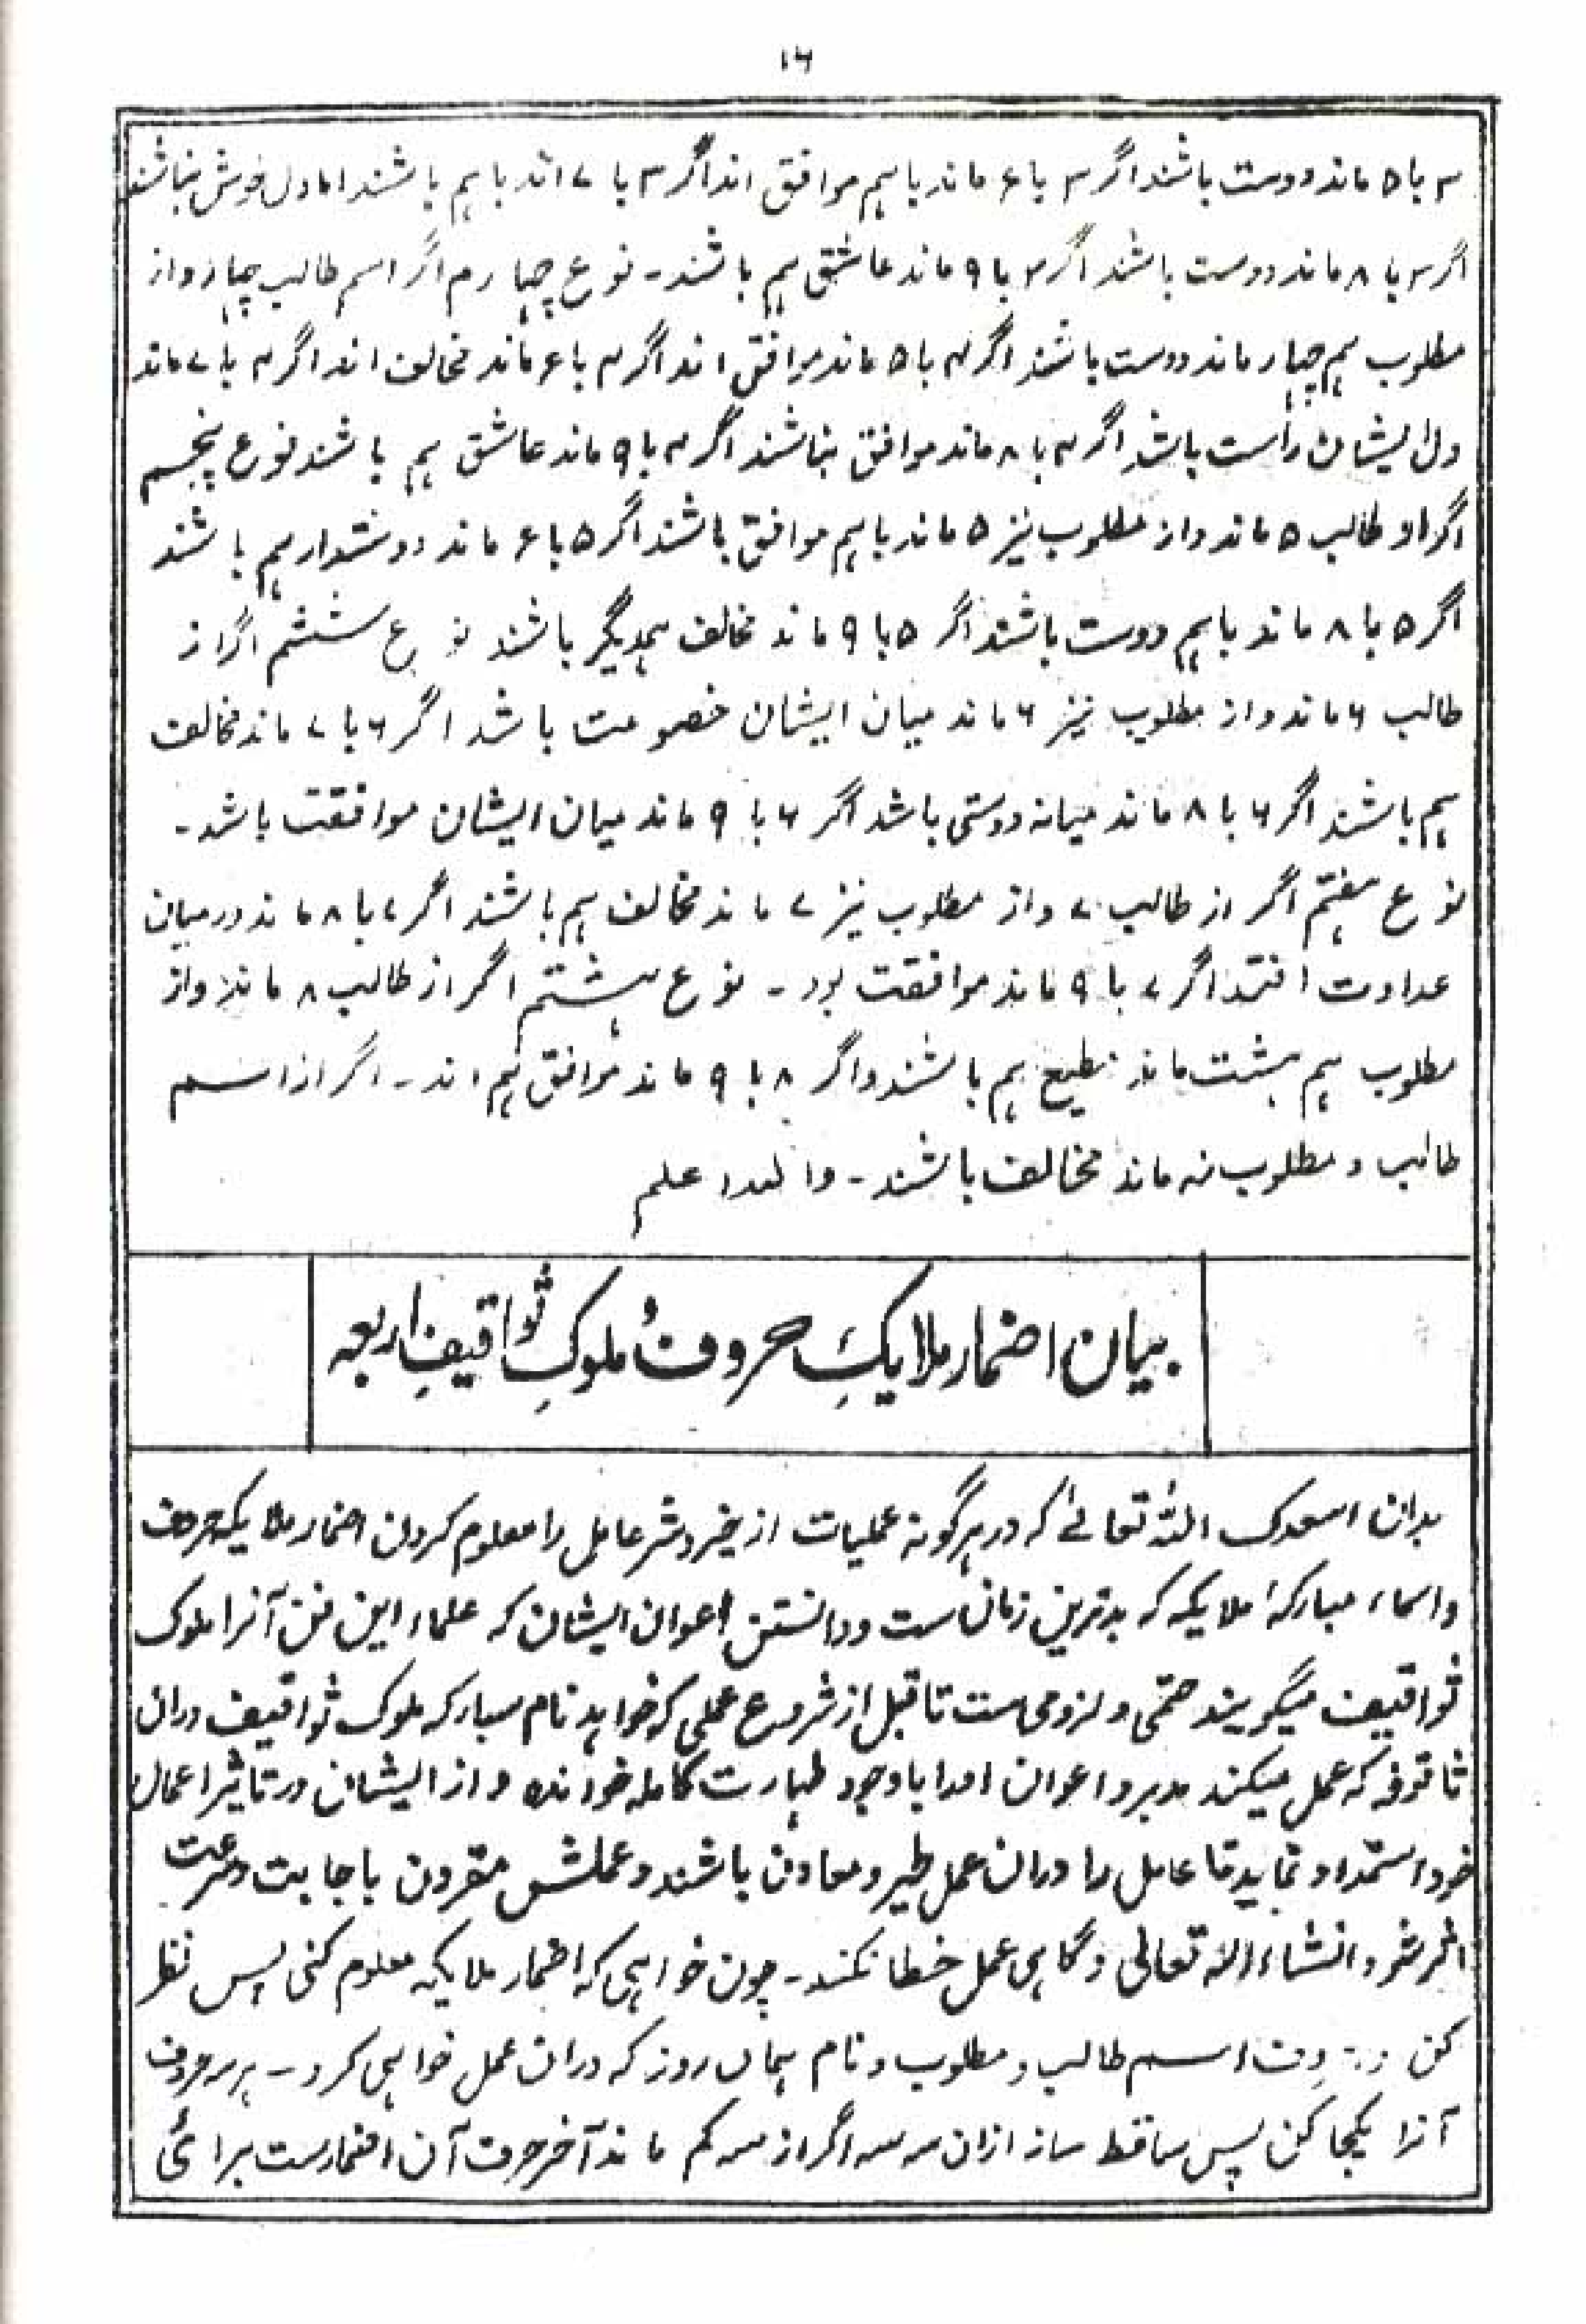 ۱۶
۳ با ۵ ماند دوست باشند اگر ۳ با ۶ ماند باہم موافق اند اگر ۳ با ۷ اند باہم باشند اما دل خوش نباشند
اگر ۳ با ۸ ماند دوست باشند اگر ۳ با ۹ ماند عاشق ہم باشند۔ نوع چہارم اگر اسم طالب چہار و از
مطلوب ہم چہار ماند دوست باشند اگر ۴ با ۵ ماند موافق اند اگر ۴ با ۶ ماند مخالف اند اگر ۴ با ۷ ماند
دل ایشان راست باشد اگر ۴ با ۸ ماند موافق نباشند اگر ۴ با ۹ ماند عاشق ہم باشند نوع پنجم
اگر او طالب ۵ ماند و از مطلوب نیز ۵ ماند باہم موافق باشند اگر ۵ با ۶ ماند دوستدار ہم باشند
اگر ۵ با ۸ ماند باہم دوست باشند اگر ۵ با ۹ ماند مخالف ہمدیگر باشند نوع ششم اگر از
طالب ۶ ماند و از مطلوب نیز ۶ ماند میان ایشان خصومت باشد اگر ۶ با ۷ ماند مخالف
ہم باشند اگر ۶ با ۸ ماند میانہ دوستی باشد اگر ۶ با ۹ ماند میان ایشان موافقت باشد۔
نوع ہفتم اگر از طالب ۷ و از مطلوب نیز ۷ ماند مخالف ہم باشند اگر ۷ با ۸ ماند درمیان
عداوت افتد اگر ۷ با ۹ ماند موافقت بود۔ نوع ہشتم اگر از طالب ۸ ماند و از
مطلوب ہم ہشت ماند مطیع ہم باشند و اگر ۸ با ۹ ماند موافق ہم اند۔ اگر از اسم
طالب و مطلوب نہ ماند مخالف باشند۔ واللہ اعلم
بیان اضمار ملایکِ حروف ملوکِ ثواقیفِ اربعہ
بدان اسعدک اللہ تعالےٰ کہ در ہر گونہ عملیات از خیر و شر عامل را معلوم کردن اضمار ملایکہ حروف
و اسماء مبارکۂ ملایکہ کہ بدترین زمان ست و دانستن اعوان ایشان کہ علماء این فن آنرا ملوک
ثواقیف میگویند حتمی و لزومی ست تا قبل از شروع عملی کہ خواہد نام مبارکہ ملوک ثواقیف دران
ثاقوفہ کہ عمل میکند مدبر و اعوان او را باوجود طہارت کاملہ خواندہ و از ایشان در تاثیر اعمال
خود استمداد نماید تا عامل را دران عمل ظہیر و معاون باشند و عملش مقرون باجابت و سرعت
اثر شود انشاء اللہ تعالی و گاہی عمل خطا نکند۔ چون خواہی کہ اضمار ملایکہ معلوم کنی پس نظر
کن اسم طالب و مطلوب و نام ہمان روز کہ دران عمل خواہی کرد۔ ہر سہ حروف
آنرا یکجا کن پس ساقط ساز ازان سہ سہ اگر از سہ کم ماند آخر حروف آن اضمارست برائی